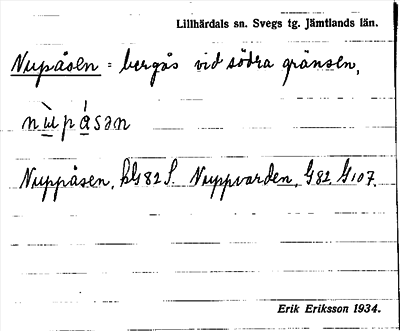 Lillhärdals sn. Svegs tg. Jämtlands län.
Nupåsen = bergås vid södra gränsen,
Nuppåsen, G82 S. Nuppvarden, G82, G107.
Erik Eriksson 1934.